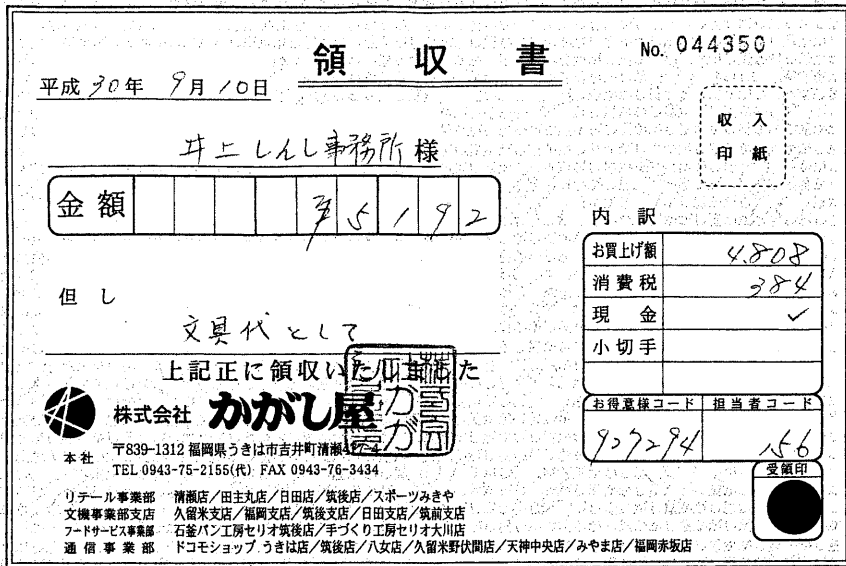 領収書
No. 044350
平成 30年 9月 10日
収入
印紙
井上しんし事務所 様
金額 ¥5192
内訳
お買上げ額 4,808
消費税 384
現金 ✓
小切手
但し
文具代として
上記正に領収いたしました
株式会社 かがし屋
お得意様コード 担当者コード
927294 156
本社
〒839-1312 福岡県うきは市吉井町清瀬
TEL 0943-75-2155(代) FAX 0943-76-3434
受領印
リテール事業部 清瀬店/田主丸店/日田店/筑後店/スポーツみきや
文機事業部支店 久留米支店/福岡支店/筑後支店/日田支店/筑前支店
フードサービス事業部 石釜パン工房セリオ筑後店/手づくり工房セリオ大川店
通信事業部 ドコモショップ うきは店/筑後店/八女店/久留米野伏間店/天神中央店/みやま店/福岡赤坂店